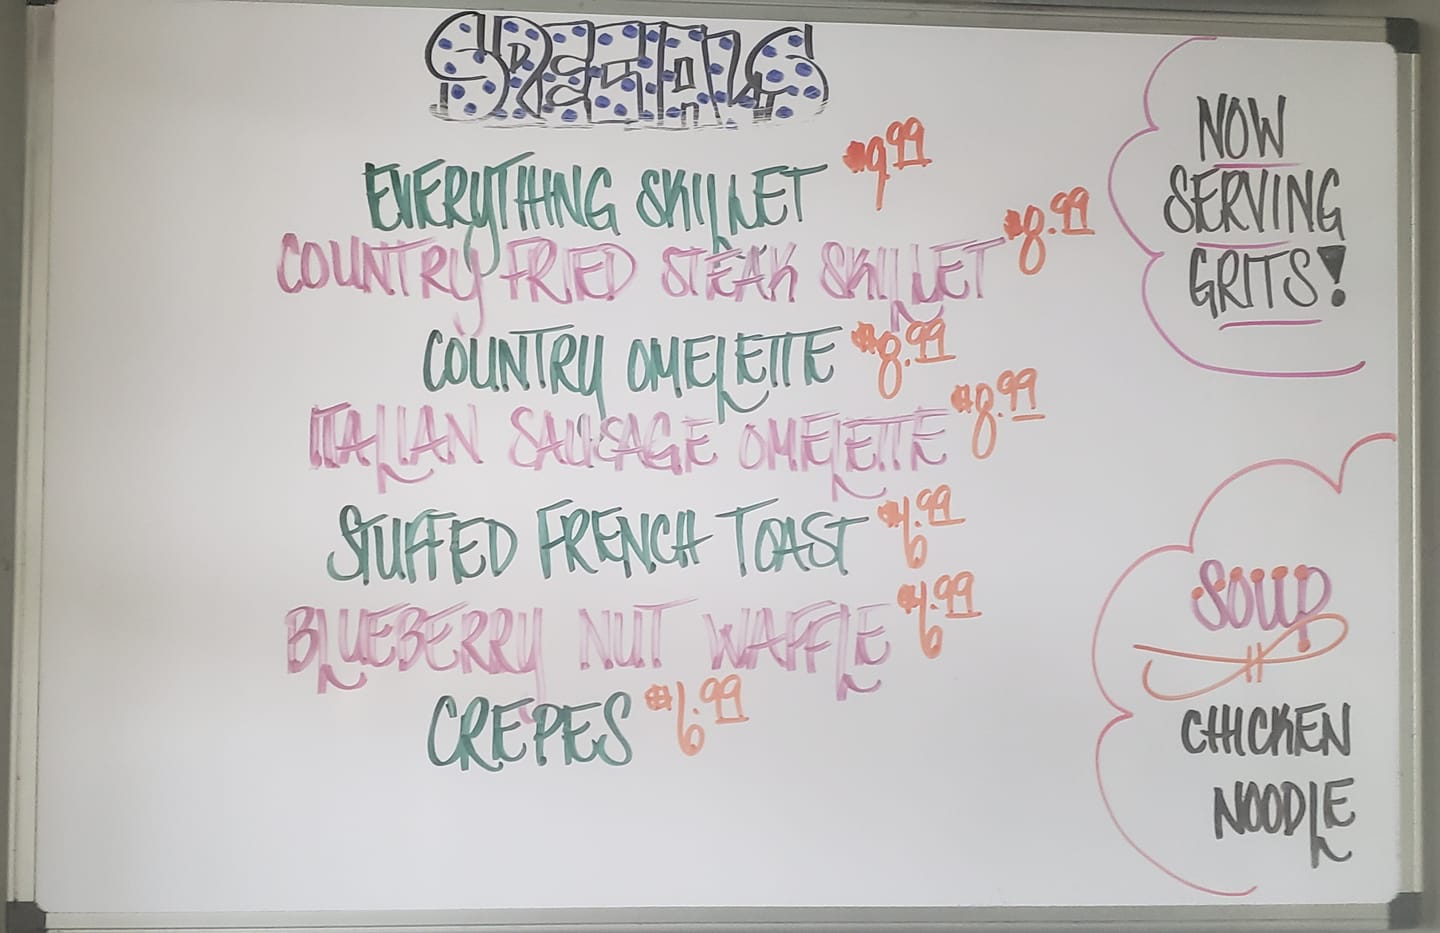 SPECIALS
EVERYTHING SKILLET $9.99
COUNTRY FRIED STEAK SKILLET $8.99
COUNTRY OMELETTE $8.99
ITALIAN SAUSAGE OMELETTE $8.99
STUFFED FRENCH TOAST $6.99
BLUEBERRY NUT WAFFLE $6.99
CREPES $6.99
NOW
SERVING
GRITS!
SOUP
CHICKEN
NOODLE